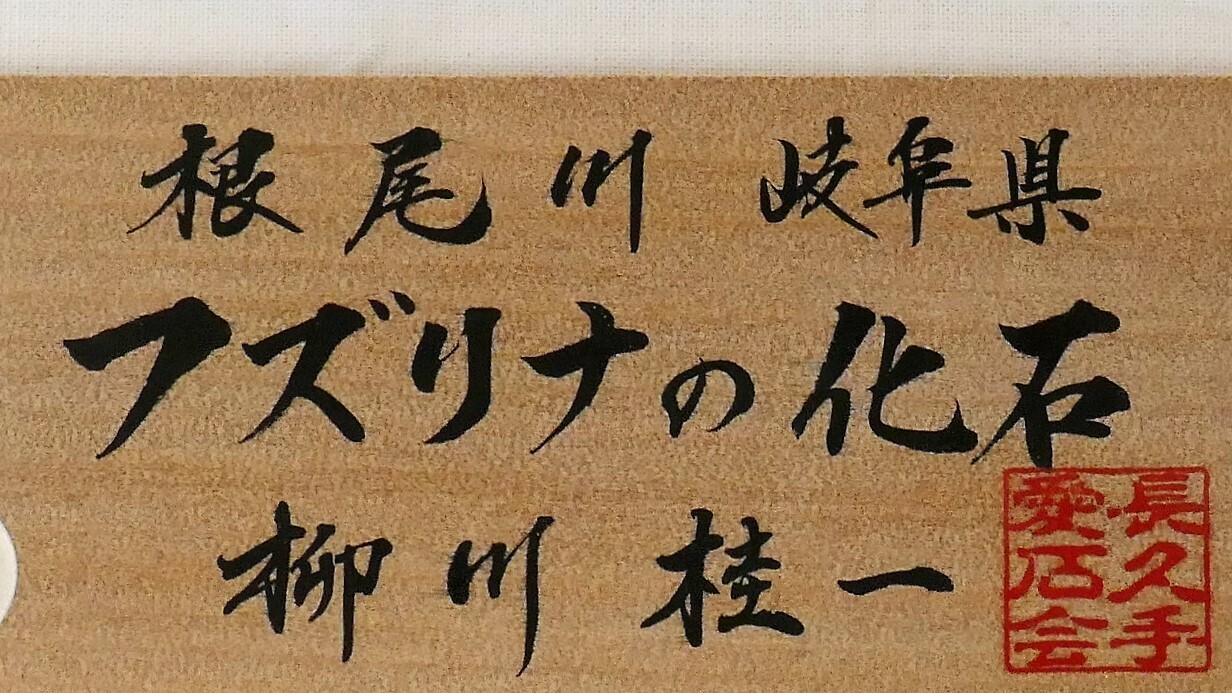 根尾川 岐阜県
フズリナの化石
柳川桂一
長久手
愛石会